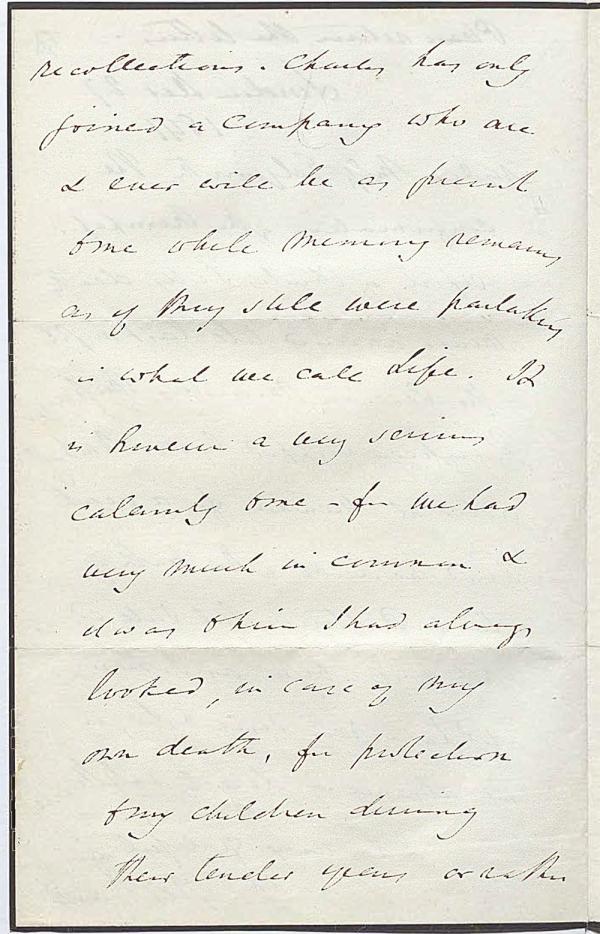 recollections. Charles has only
joined a company who are
& ever will be as present
to me while memory remains,
as if they still were partaking
in what we call Life. It
is however a very serious
calamity to me – for we had
very much in common &
it was to him I had always
looked, in case of my
own death, for protection
to my children during
their tender years, or rather